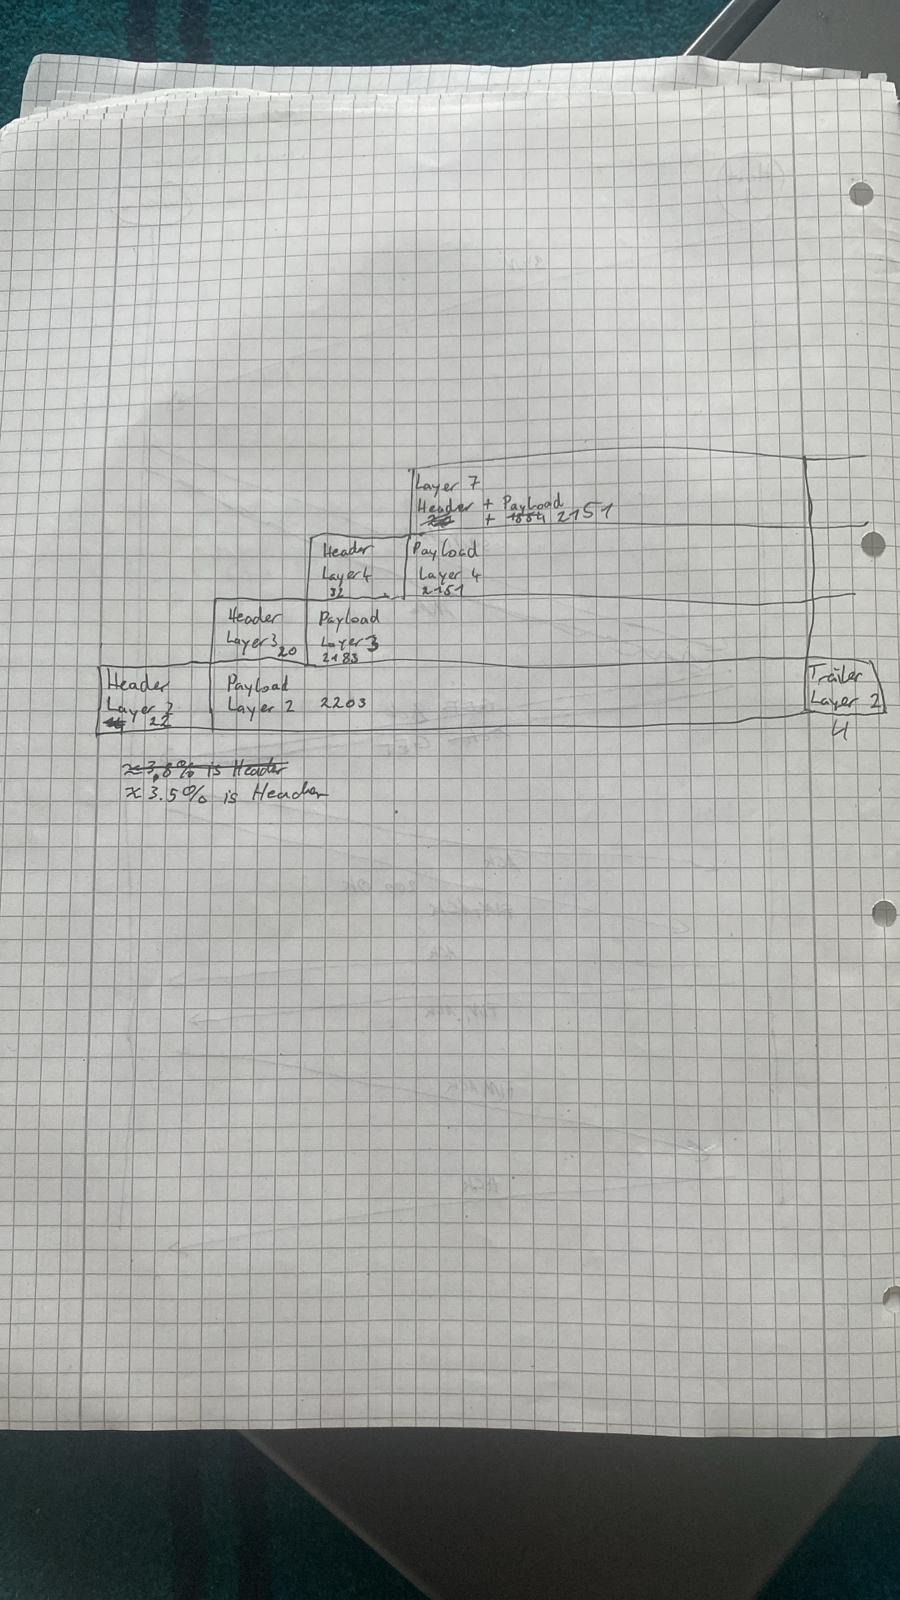 Layer 7
Header + Payload
+ 2151
Header
Layer 4
32
Payload
Layer 4
2151
Header
Layer 3 20
Payload
Layer 3
2183
Header
Layer 2
22
Payload
Layer 2 2203
Trailer
Layer 2
4
≈ 3,8% is Header
≈ 3.5% is Header